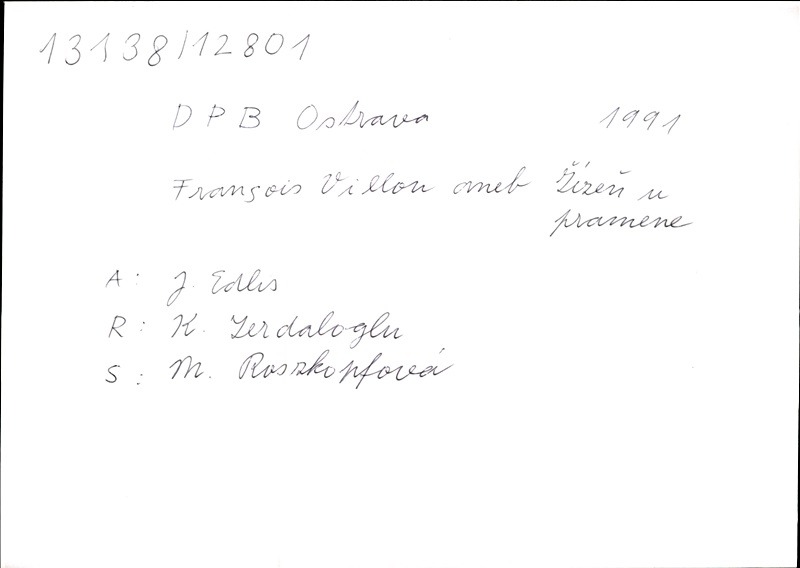 13138/12801
DPB Ostrava 1991
François Villon aneb Žízeň u
pramene
A: J. Edlis
R: K. Zerdaloglu
S: M. Roszkopfová